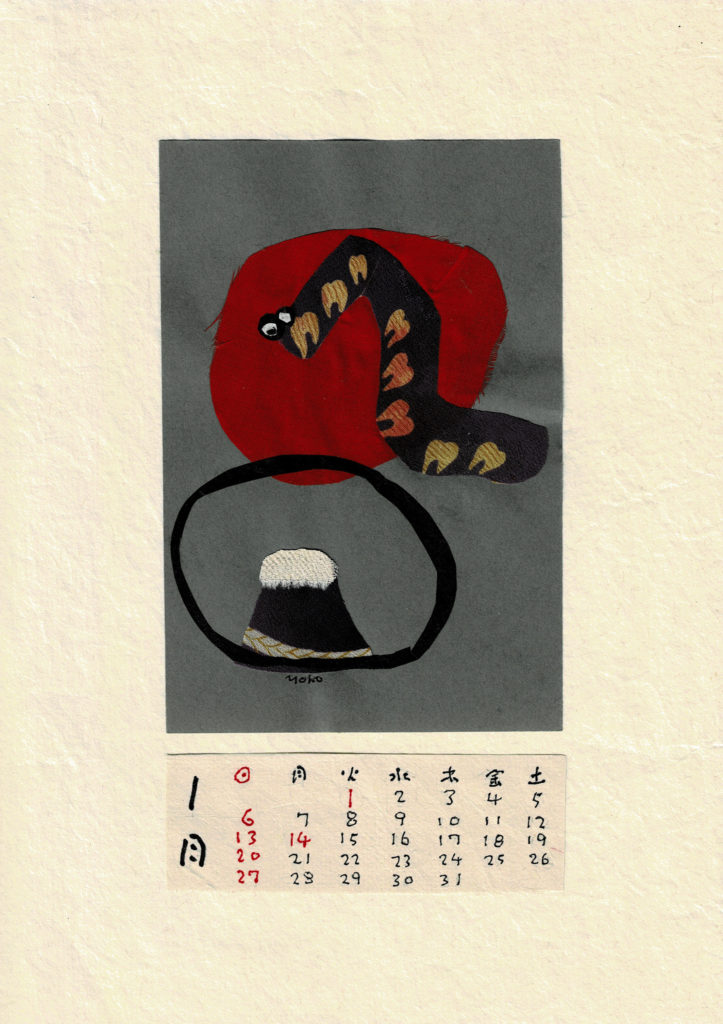 yoko
1月
日 月 火 水 木 金 土
1 2 3 4 5
6 7 8 9 10 11 12
13 14 15 16 17 18 19
20 21 22 23 24 25 26
27 28 29 30 31